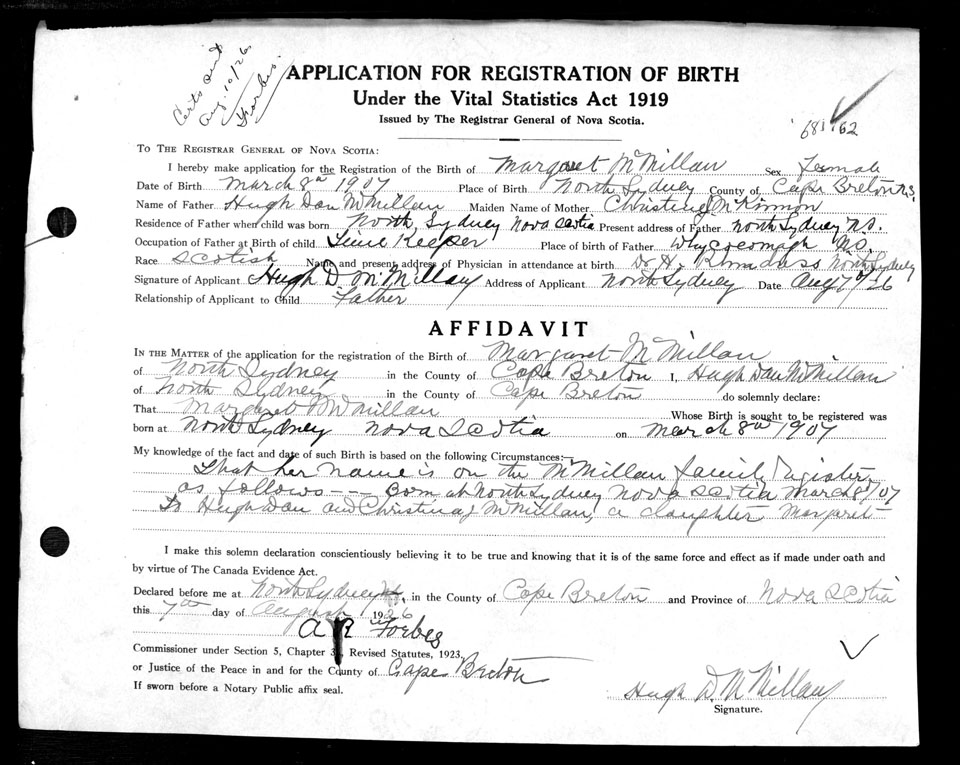 Certs sent
Aug. 10/26
Forbes.
APPLICATION FOR REGISTRATION OF BIRTH
Under the Vital Statistics Act 1919
Issued by The Registrar General of Nova Scotia.
TO THE REGISTRAR GENERAL OF NOVA SCOTIA:
I hereby make application for the Registration of the Birth of Margaret McMillan Sex Female
Date of Birth March 8th 1907 Place of Birth North Sydney County of Cape Breton N.S.
Name of Father Hugh Dan McMillan Maiden Name of Mother Christina J McKinnon
Residence of Father when child was born North Sydney Nova Scotia Present address of Father North Sydney N.S.
Occupation of Father at Birth of child Time Keeper Place of birth of Father Whycocomagh N.S.
Race Scotish Name and present address of Physician in attendance at birth Dr. H. North Sydney
Signature of Applicant Hugh D. McMillan Address of Applicant North Sydney Date Aug 7th/26
Relationship of Applicant to Child Father
AFFIDAVIT
IN THE MATTER of the application for the registration of the Birth of Margaret McMillan
of North Sydney in the County of Cape Breton I, Hugh Dan McMillan
of North Sydney in the County of Cape Breton do solemnly declare:
That Margaret McMillan Whose Birth is sought to be registered was
born at North Sydney Nova Scotia on March 8th 1907
My knowledge of the fact and date of such Birth is based on the following Circumstances:—
That her name is on the McMillan family Register
as follows —— Born at North Sydney Nova Scotia March 8/07
To Hugh Dan and Christina J McMillan, a daughter Margaret
I make this solemn declaration conscientiously believing it to be true and knowing that it is of the same force and effect as if made under oath and
by virtue of The Canada Evidence Act.
Declared before me at North Sydney, in the County of Cape Breton and Province of Nova Scotia
this 7th day of August 1926
A R Forbes
Commissioner under Section 5, Chapter Revised Statutes, 1923,
or Justice of the Peace in and for the County of Cape Breton
If sworn before a Notary Public affix seal.
Hugh D. McMillan
Signature.